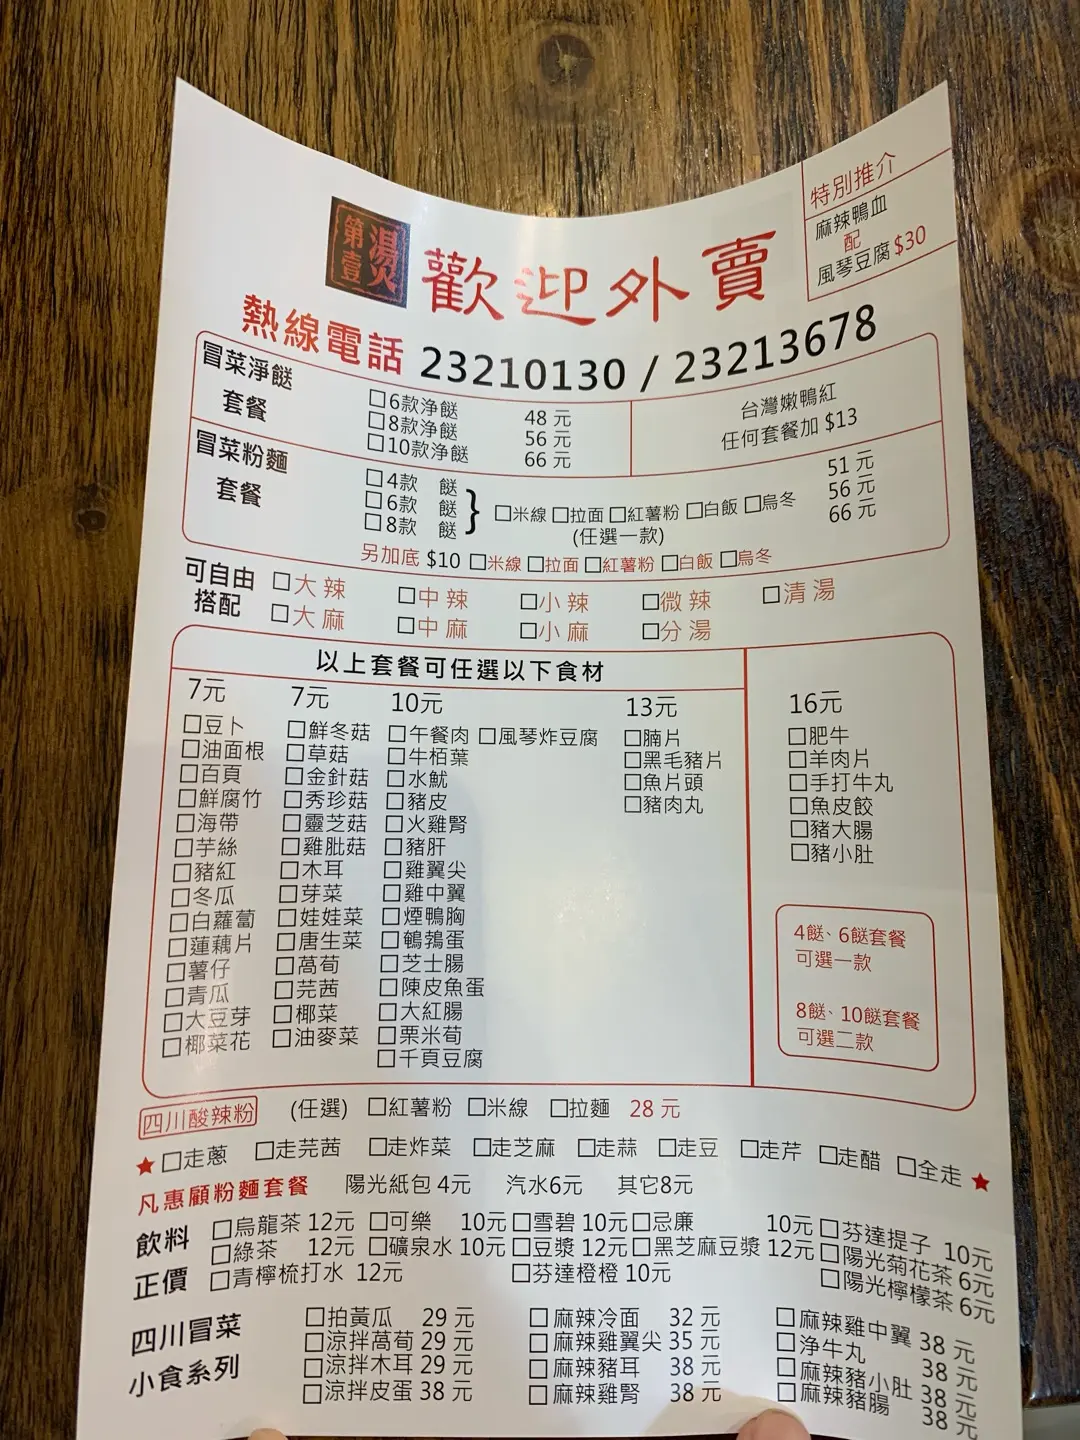 特別推介
麻辣鴨血
配
風琴豆腐 $30
第壹湯火
歡迎外賣
熱線電話 23210130 / 23213678
冒菜淨餸
套餐
□6款淨餸 48 元
□8款淨餸 56 元
□10款淨餸 66 元
台灣嫩鴨紅
任何套餐加 $13
冒菜粉麵
套餐
□4款 餸 51 元
□6款 餸 } □米線 □拉面 □紅薯粉 □白飯 □烏冬 56 元
□8款 餸 (任選一款) 66 元
另加底 $10 □米線 □拉面 □紅薯粉 □白飯 □烏冬
可自由
搭配
□大辣 □中辣 □小辣 □微辣 □清湯
□大麻 □中麻 □小麻 □分湯
以上套餐可任選以下食材
7元
□豆卜
□油面根
□百頁
□鮮腐竹
□海帶
□芋絲
□豬紅
□冬瓜
□白蘿蔔
□蓮藕片
□薯仔
□青瓜
□大豆芽
□椰菜花
7元
□鮮冬菇
□草菇
□金針菇
□秀珍菇
□靈芝菇
□雞肶菇
□木耳
□芽菜
□娃娃菜
□唐生菜
□萵荀
□芫茜
□椰菜
□油麥菜
10元
□午餐肉 □風琴炸豆腐
□牛栢葉
□水魷
□豬皮
□火雞腎
□豬肝
□雞翼尖
□雞中翼
□煙鴨胸
□鵪鶉蛋
□芝士腸
□陳皮魚蛋
□大紅腸
□栗米荀
□千頁豆腐
13元
□腩片
□黑毛豬片
□魚片頭
□豬肉丸
16元
□肥牛
□羊肉片
□手打牛丸
□魚皮餃
□豬大腸
□豬小肚
4餸、6餸套餐
可選一款
8餸、10餸套餐
可選二款
四川酸辣粉 (任選) □紅薯粉 □米線 □拉麵 28 元
★ □走蔥 □走芫茜 □走炸菜 □走芝麻 □走蒜 □走豆 □走芹 □走醋 □全走 ★
凡惠顧粉麵套餐 陽光紙包 4元 汽水6元 其它8元
飲料
正價
□烏龍茶 12元 □可樂 10元 □雪碧 10元 □忌廉 10元 □芬達提子 10元
□綠茶 12元 □礦泉水 10元 □豆漿 12元 □黑芝麻豆漿 12元 □陽光菊花茶 6元
□青檸梳打水 12元 □芬達橙橙 10元 □陽光檸檬茶 6元
四川冒菜
小食系列
□拍黃瓜 29 元 □麻辣冷面 32 元 □麻辣雞中翼 38 元
□涼拌萵荀 29 元 □麻辣雞翼尖 35 元 □淨牛丸 38 元
□涼拌木耳 29 元 □麻辣豬耳 38 元 □麻辣豬小肚 38 元
□涼拌皮蛋 38 元 □麻辣雞腎 38 元 □麻辣豬腸 38 元